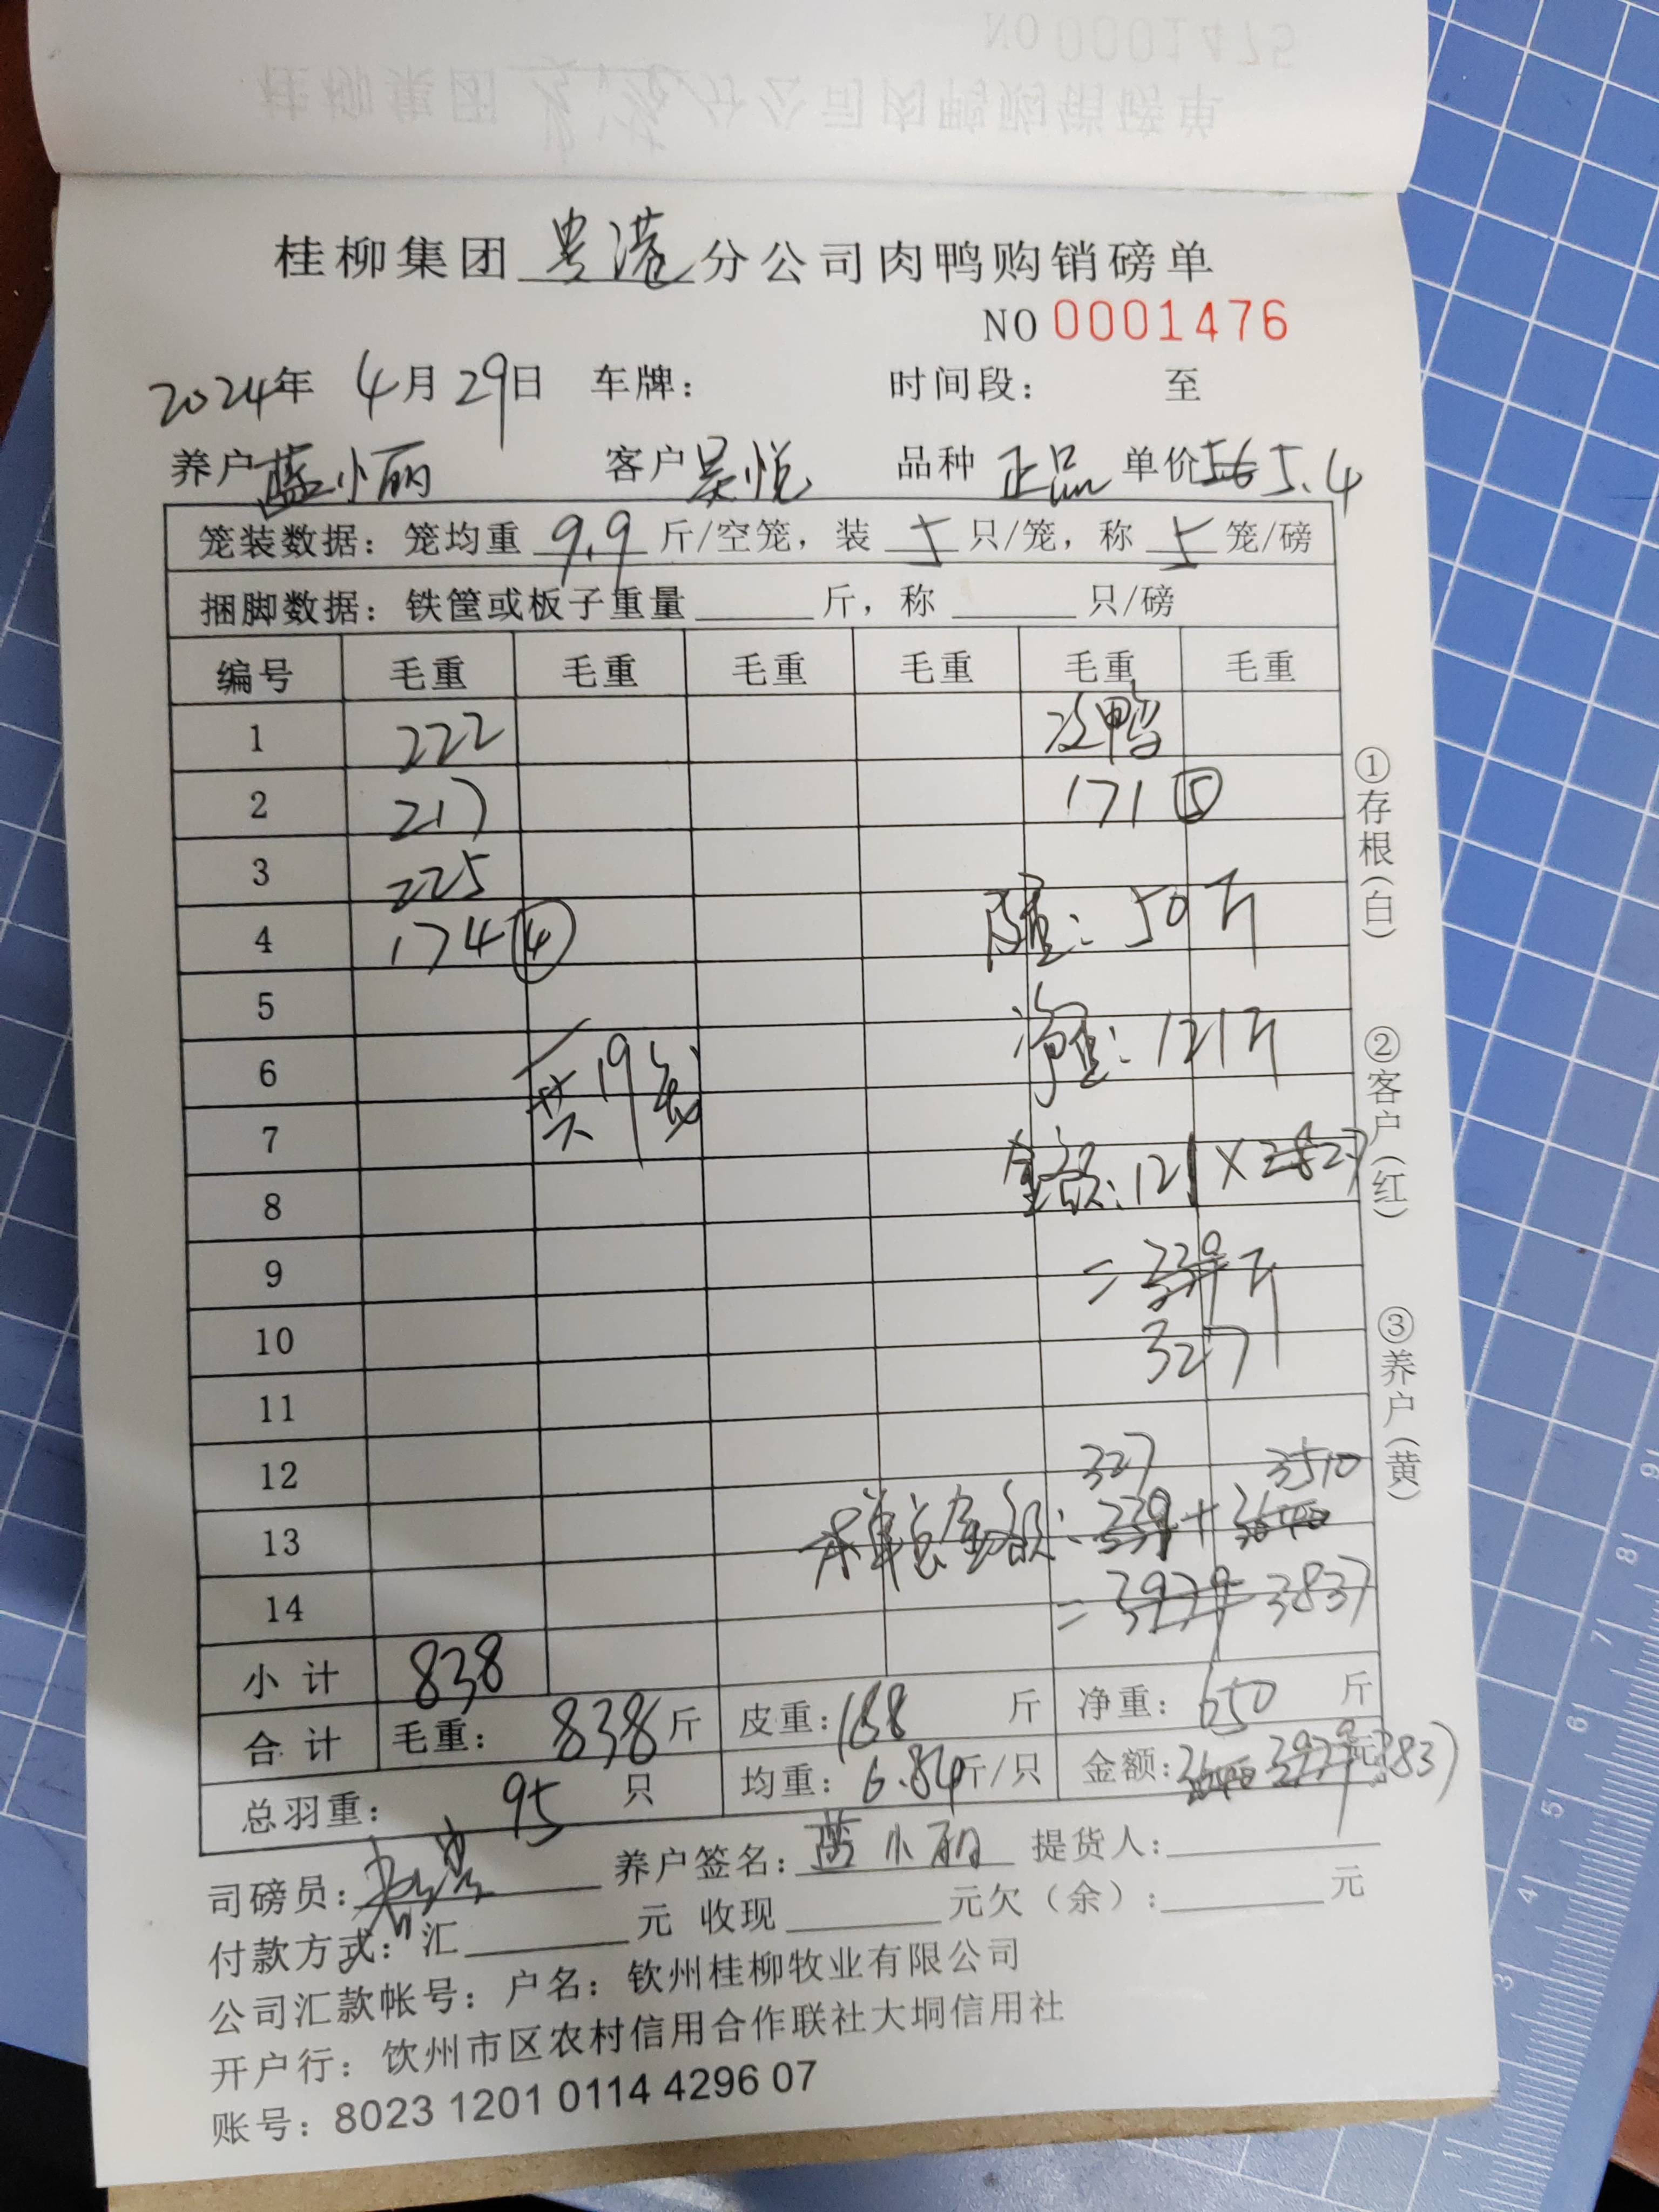 桂柳集团贵港分公司肉鸭购销磅单
NO 0001476
2024年 4月29日 车牌： 时间段： 至
养户蓝小丽 客户吴悦 品种 正品 单价5.6 5.4
笼装数据：笼均重 9.9 斤/空笼，装 5 只/笼，称 5 笼/磅
捆脚数据：铁筐或板子重量 斤，称 只/磅
编号 毛重 毛重 毛重 毛重 毛重 毛重
1 222 次鸭
2 217 171 ⑤
3 225
4 174 ④ 皮重：50斤
5
6 共19笼 净重：121斤
7
8 金额：121×2.8 2.7
9 =339元
10 327
11
12 327 3510
13 本单总金额：339+3640
14 =3979 3837
小计 838
合计 毛重：838斤 皮重：188 斤 净重：650 斤
总羽重：95 只 均重：6.84斤/只 金额：3640 3979元3837
司磅员： 养户签名：蓝小丽 提货人：
付款方式：汇 元 收现 元欠（余）： 元
公司汇款帐号：户名：钦州桂柳牧业有限公司
开户行：钦州市区农村信用合作联社大垌信用社
账号：8023 1201 0114 4296 07
①存根（白）
②客户（红）
③养户（黄）
NO 0001475
桂柳集团贵港分公司肉鸭购销磅单